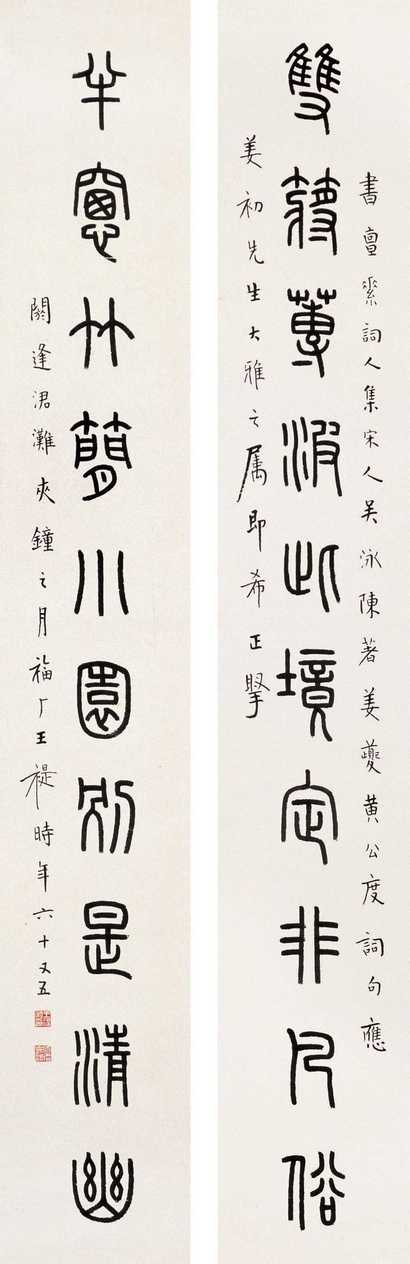 書亶絫詞人集宋人吴泳陳著姜夔黃公度詞句應
雙槳蓴波此境定非凡俗
姜初先生大雅之属即希正掔
半窗竹簡小園別是清幽
閼逢涒灘夾鐘之月福厂王禔時年六十又五